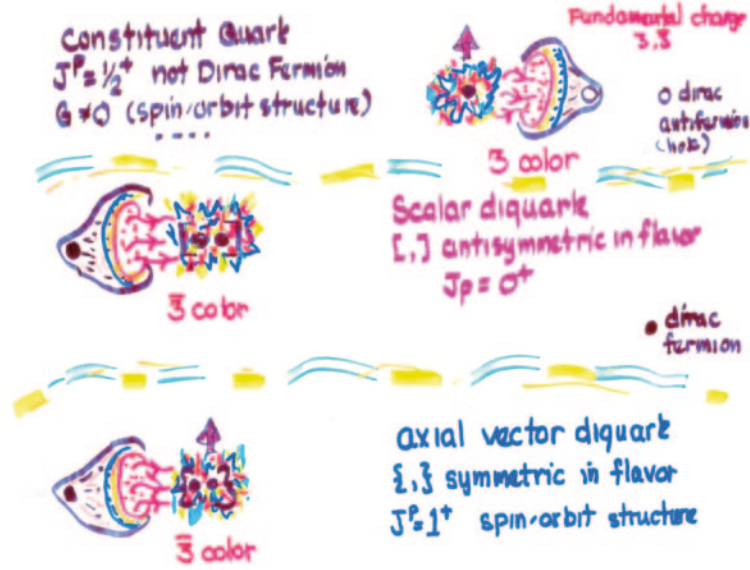 Constituent Quark
Jᴾ=½⁺ not Dirac Fermion
G≠0 (spin-orbit structure)
....
Fundamental charge
3,3̄
3 color
o dirac
antifermion
(hole)
Scalar diquark
[,] antisymmetric in flavor
Jp = 0⁺
3̄ color
• dirac
fermion
axial vector diquark
{,} symmetric in flavor
Jᴾ=1⁺ spin-orbit structure
3̄ color